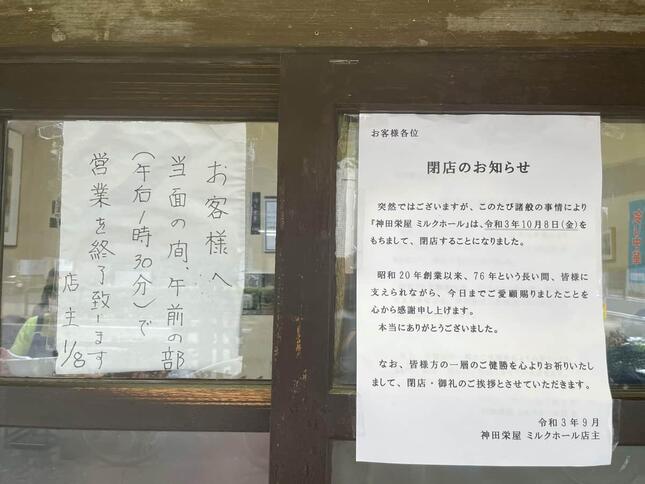 お客様へ
当面の間、午前の部
(午后1時30分)で
営業を終了致します
店主 1/8
お客様各位
閉店のお知らせ
突然ではございますが、このたび諸般の事情により
『神田栄屋 ミルクホール』は、令和3年10月8日(金)を
もちまして、閉店することになりました。
昭和20年創業以来、76年という長い間、皆様に
支えられながら、今日までご愛顧賜りましたことを
心から感謝申し上げます。
本当にありがとうございました。
なお、皆様方の一層のご健勝を心よりお祈りいたし
まして、閉店・御礼のご挨拶とさせていただきます。
令和3年9月
神田栄屋 ミルクホール店主